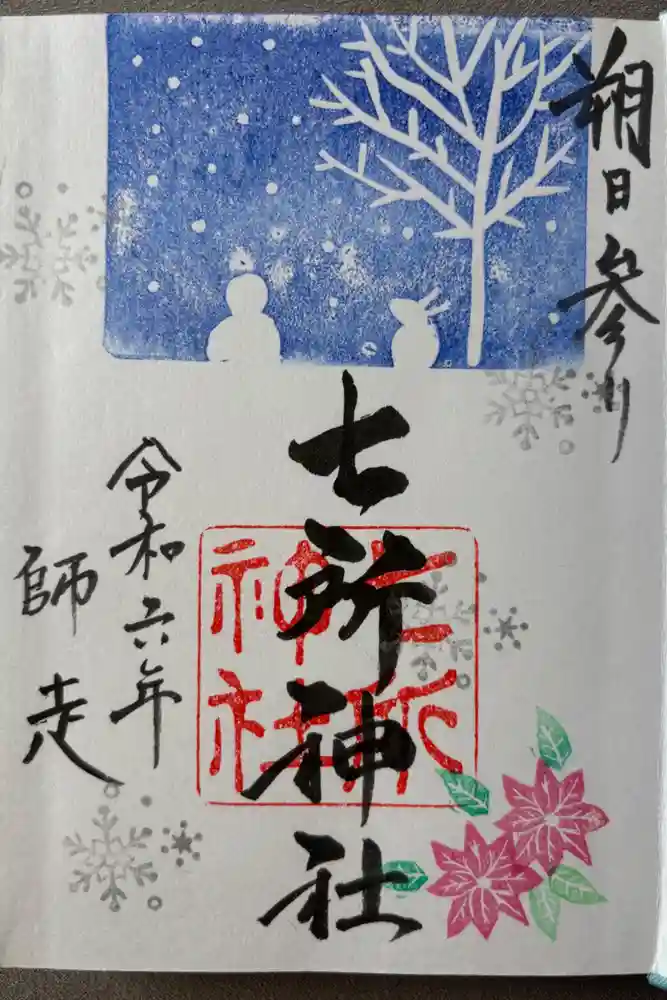 朔日参り
七所神社
七所
神社
令和六年
師走